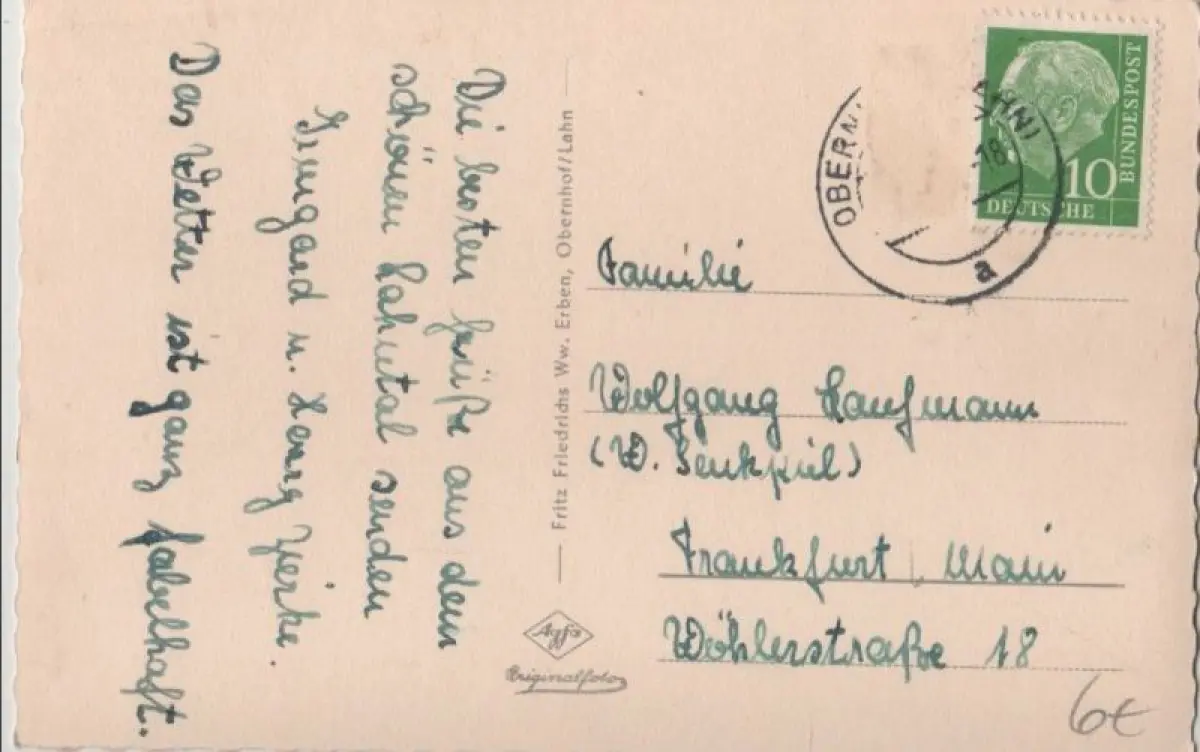 Die besten Grüße aus dem
schönen Lahntal senden
Irmgard u. 
Das Wetter ist ganz fabelhaft.
Fritz Friedrichs Ww. Erben, Obernhof/Lahn
Agfa
Originalfoto
OBERN
AHN)
-18
a
10
DEUTSCHE
BUNDESPOST
Familie
Wolfgang Kaufmann
(W. Senkpiel)
Frankfurt, Main
Wöhlerstraße 18
6€